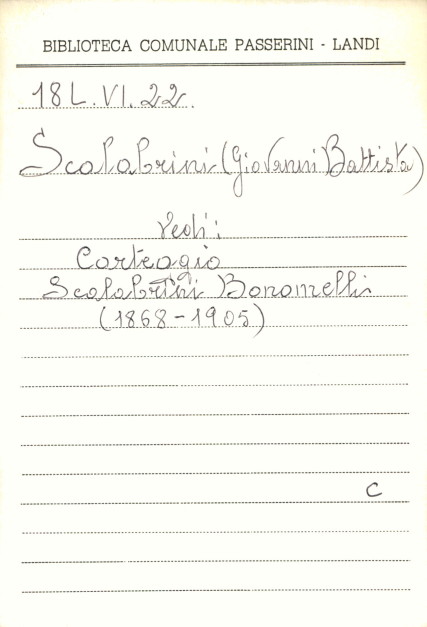 BIBLIOTECA COMUNALE PASSERINI - LANDI
18 L. VI. 22.
Scalabrini (Giovanni Battista)
Vedi:
Carteggio
Scalabrini Bonomelli
(1868-1905)
C